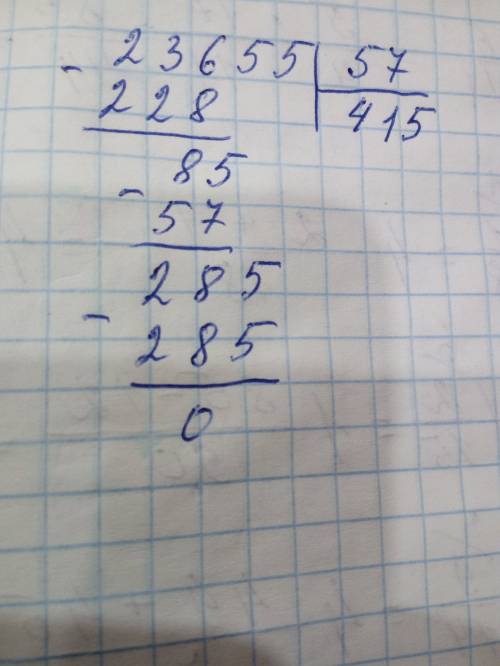 - 23655 | 57
228 | 415
- 85
57
- 285
285
0